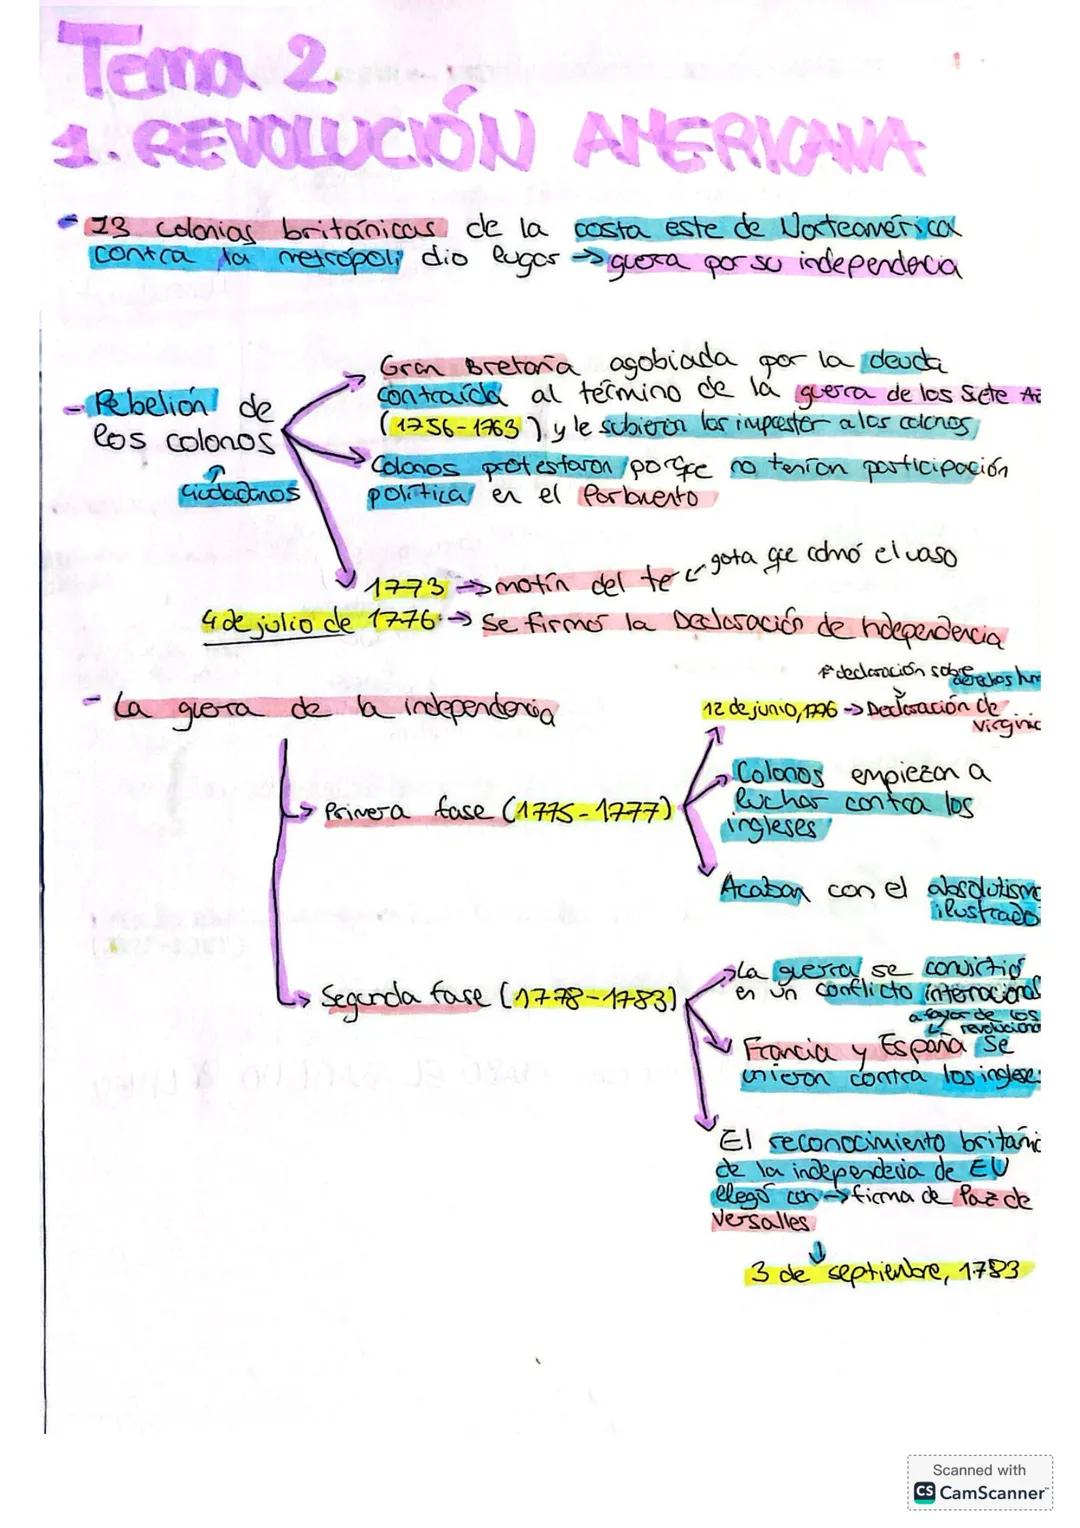 Tema 2
1. REVOLUCIÓN AMERICANA
- 13 colonias británicas de la costa este de Norteamérica
contra la metrópoli dio lugar → guerra por su independencia
Gran Bretaña agobiada por la deuda
contraída al término de la guerra de los Siete
(1756-1763) y le subieron los impuestos a los colonos
- Rebelión de
los colonos
ciudadanos
Colonos protestaron porque no tenían participación
política en el Parlamento
1773 → motín del te gota que colmó el vaso
4 de julio de 1776 → se firmó la Declaración de Independencia
- La guerra de la independencia
1ª declaración sobre derechos
12 de junio, 1776 → Declaración de
Primera fase (1775-1777)
Colonos empiezan a
luchar contra los
ingleses
Acaban con el
ilustrado
Segunda fase (1778-1783)
La guerra se convirtió
en un conflicto internacional
a favor de los
Francia y España se
unieron contra los
El reconocimiento
de la independencia de EU
llegó con → firma de Paz de
Versalles
3 de septiembre, 1783
Scanned with
CS CamScanner